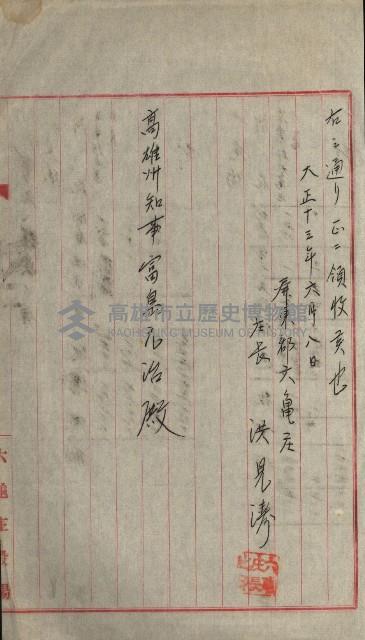 右之通リ正ニ領收候也
大正十三年六月八日
屏東郡六龜庄
庄長 洪見濤
高雄州知事 富島元治殿
高雄市立歷史博物館
KAOHSIUNG MUSEUM OF HISTORY
六龜庄役場